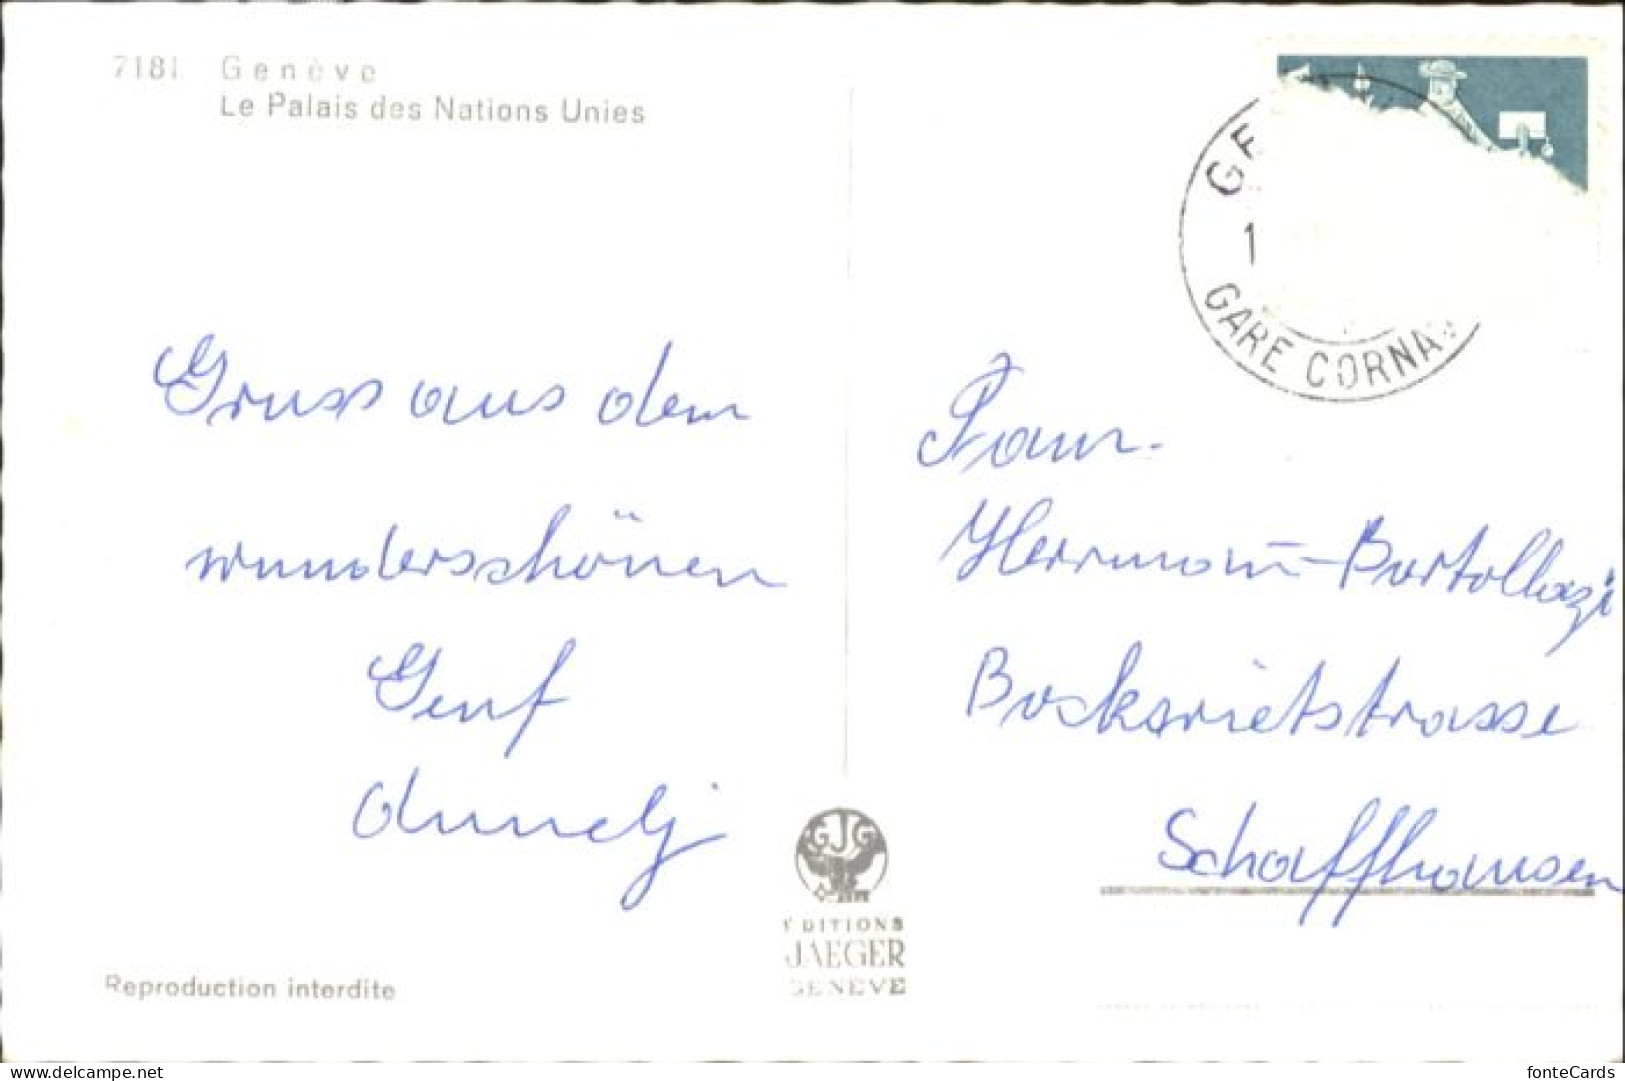 7181 Genève
Le Palais des Nations Unies
GARE CORNA
Gruss aus dem
wunderschönen
Genf
Annelj
Frau
Herrmann-Bortollazi
Bocksrietstrasse
Schaffhausen
GJG
EDITIONS
JAEGER
GENEVE
Reproduction interdite
www.delcampe.net
fonteCards